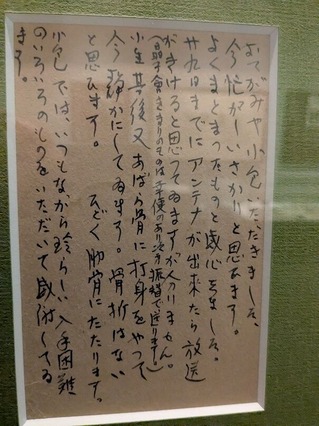 おてがみや小包いただきました、
今忙がしいさかりと思ひます。
よくまとまつたものと感心しました。
廿九日までにアンテナが出来たら放送
がきけると思つてゐますが分りません。
小生其後又あばら骨に打身をやつて
今静かにしてゐます。骨折はない
と思ひます。 ひどく肋骨にたたります。
小包では、いつもながら珍らしい入手困難
のいろいろのものをいただいて感謝してゐ
ます。